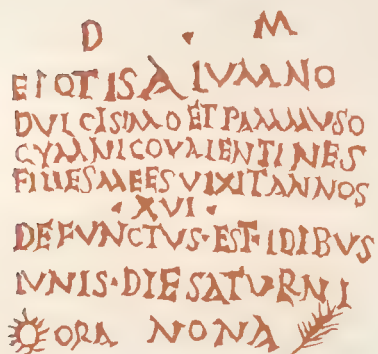 D · M
EIOTISALVMNO
DVLCISIMOETPAMMVSO
GYMNICOVALENTINES
FILIESMEESVIXITANNOS
· XVI ·
DEFVNCTVS·EST·IDIBVS
IVNIS·DIESATVRNI
ORA NONA